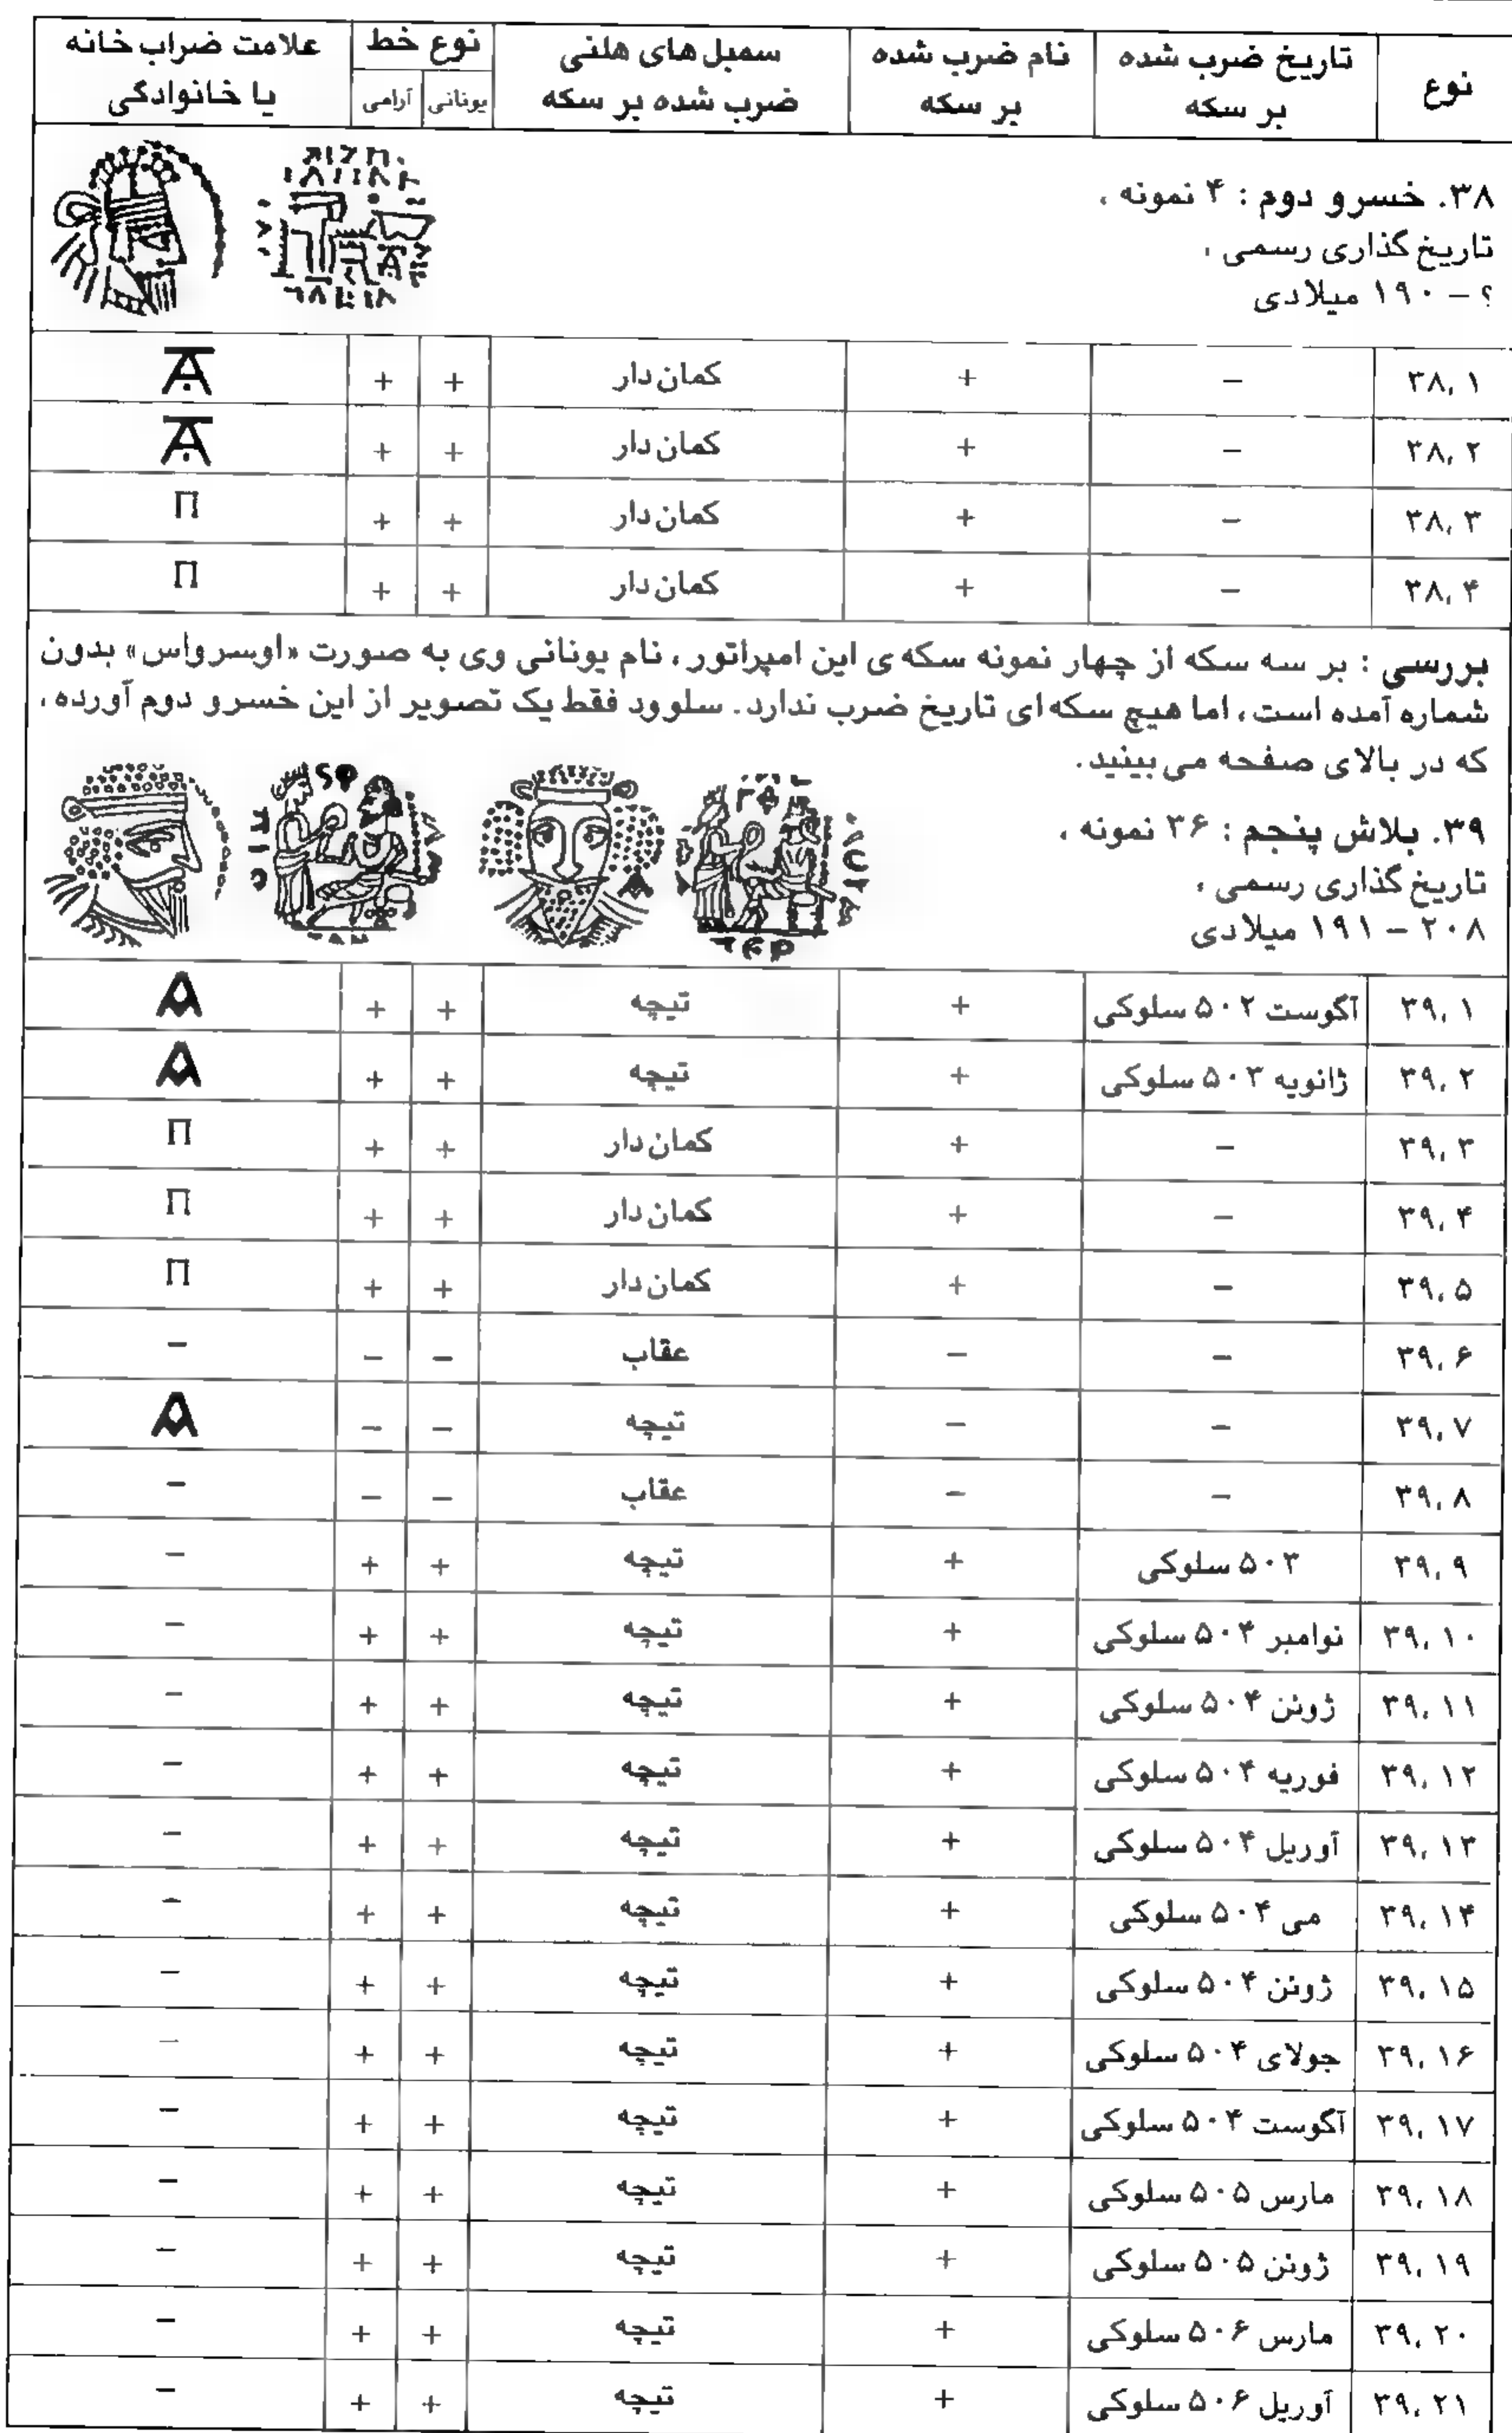 نوع | تاریخ ضرب شده بر سکه | نام ضرب شده بر سکه | سمبل های هلنی ضرب شده بر سکه | نوع خط: یونانی | آرامی | علامت ضراب خانه یا خانوادگی
۳۸. خسرو دوم : ۴ نمونه ،
تاریخ گذاری رسمی ،
؟ – ۱۹۰ میلادی
۳۸,۱ | – | + | کمان دار | + | + |
۳۸,۲ | – | + | کمان دار | + | + |
۳۸,۳ | – | + | کمان دار | + | + | Π
۳۸,۴ | – | + | کمان دار | + | + | Π
بررسی : بر سه سکه از چهار نمونه سکه ی این امپراتور، نام یونانی وی به صورت «اوسرواس» بدون
شماره آمده است، اما هیچ سکه ای تاریخ ضرب ندارد. سلوود فقط یک تصویر از این خسرو دوم آورده،
که در بالای صفحه می بینید.
۳۹. بلاش پنجم : ۳۶ نمونه ،
تاریخ گذاری رسمی ،
۲۰۸ – ۱۹۱ میلادی
۳۹,۱ | آگوست ۵۰۲ سلوکی | + | تیچه | + | + |
۳۹,۲ | ژانویه ۵۰۳ سلوکی | + | تیچه | + | + |
۳۹,۳ | – | + | کمان دار | + | + | Π
۳۹,۴ | – | + | کمان دار | + | + | Π
۳۹,۵ | – | + | کمان دار | + | + | Π
۳۹,۶ | – | – | عقاب | – | – | –
۳۹,۷ | – | – | تیچه | – | – |
۳۹,۸ | – | – | عقاب | – | – | –
۳۹,۹ | ۵۰۳ سلوکی | + | تیچه | + | + | –
۳۹,۱۰ | نوامبر ۵۰۴ سلوکی | + | تیچه | + | + | –
۳۹,۱۱ | ژوئن ۵۰۴ سلوکی | + | تیچه | + | + | –
۳۹,۱۲ | فوریه ۵۰۴ سلوکی | + | تیچه | + | + | –
۳۹,۱۳ | آوریل ۵۰۴ سلوکی | + | تیچه | + | + | –
۳۹,۱۴ | می ۵۰۴ سلوکی | + | تیچه | + | + | –
۳۹,۱۵ | ژوئن ۵۰۴ سلوکی | + | تیچه | + | + | –
۳۹,۱۶ | جولای ۵۰۴ سلوکی | + | تیچه | + | + | –
۳۹,۱۷ | آگوست ۵۰۴ سلوکی | + | تیچه | + | + | –
۳۹,۱۸ | مارس ۵۰۵ سلوکی | + | تیچه | + | + | –
۳۹,۱۹ | ژوئن ۵۰۵ سلوکی | + | تیچه | + | + | –
۳۹,۲۰ | مارس ۵۰۶ سلوکی | + | تیچه | + | + | –
۳۹,۲۱ | آوریل ۵۰۶ سلوکی | + | تیچه | + | + | –